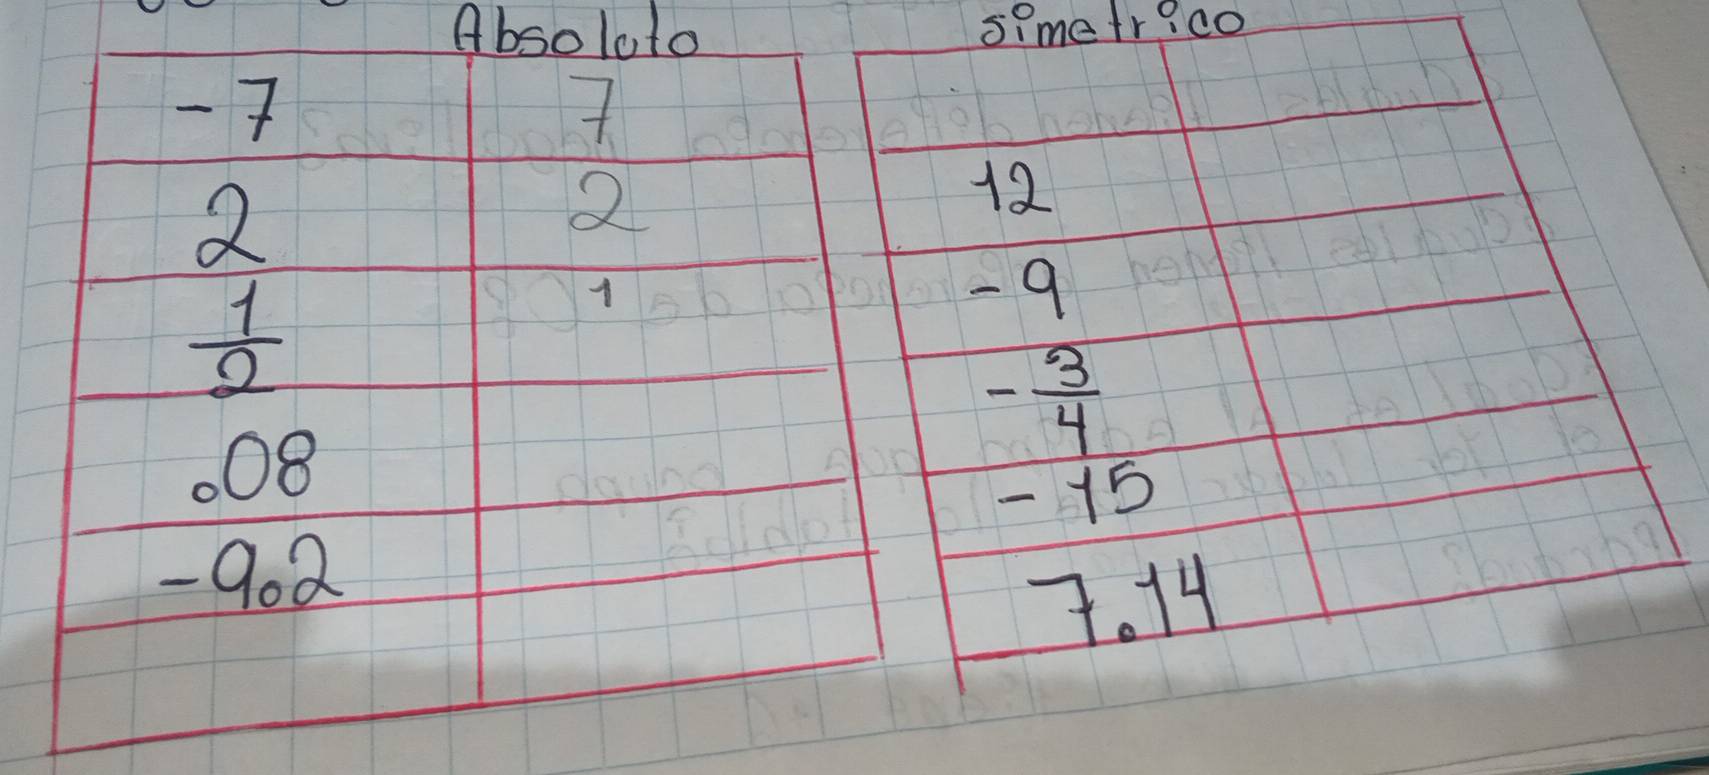 Absoluto
-7 7
2 2
1/2 1
.08
-9.2
simetrico
12
-9
-3/4
-15
7.14